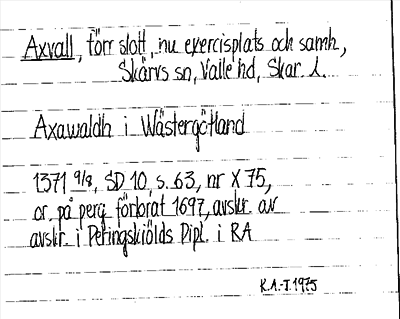 Axvall, förr slott, nu exercisplats och samh.,
Skärvs sn, Valle hd, Skar. l.
Axawaldh i Wästergötland
1371 9/9, SD 10, s. 63, nr X 75,
or. på perg. förbrat 1697, avskr. av
avskr. i Peringskiölds Dipl. i RA
K.A.-T. 1975